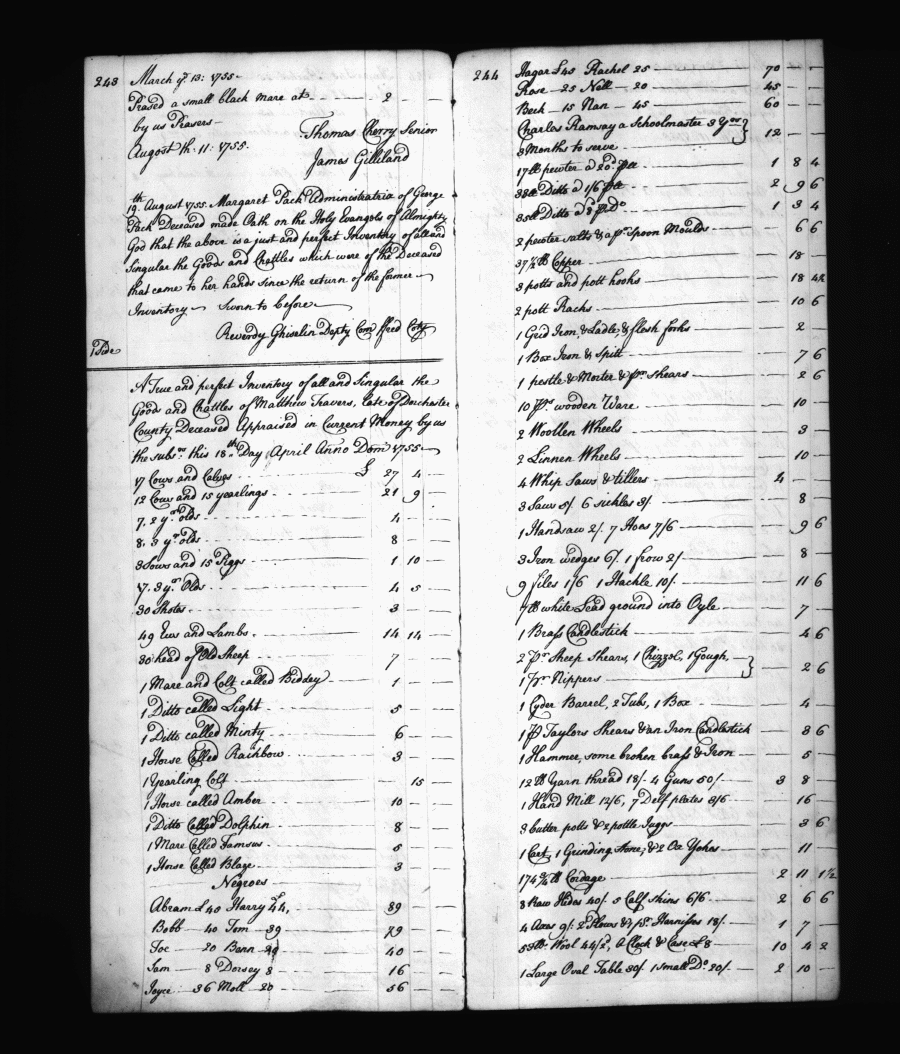 243
March ye 13: 1755
Prased a small black mare at 2
by us Prasers
Thomas Cherry Senior
August th: 11: 1755
James Gilliland
19th August 1755. Margaret Pack Administratria of George
Pack Deceased made Oath on the Holy Evangels of Almighty
God that the above is a just and perfect Inventory of all and
Singular the Goods and Chattles which were of the Deceased
that came to her hands since the return of the former
Inventory Sworn to before
Reverdy Ghiselin Depty Com ffred Coty
1 Side
A True and perfect Inventory of all and Singular the
Goods and Chattles of Matthew Travers, late of Dorchester
County Deceased Appraised in Current Money by us
the subsrs this 18th Day April Anno Dom 1755
17 Cows and Calves £ 27 4 —
12 Cows and 15 yearlings 21 9 —
7. 2 yr olds 4 — —
8. 3 yr olds 8 — —
3 Sows and 15 Piggs 1 10 —
17. 3 yr Olds 4 5 —
30 Shotes 3 — —
49 Ews and Lambs 14 14 —
30 head of Old Sheep 7 — —
1 Mare and Colt called Biddey 1 — —
1 Ditto called Light 5 — —
1 Ditto called Minty 6 — —
1 Horse Called Rainbow 3 — —
1 Yearling Colt — 15
1 Horse called Amber 10 — —
1 Ditto Called Dolphin 8 — —
1 Mare Called Famous 5 — —
1 Horse Called Blaze 3
Negroes
Abram £ 40 Harry 44, 89
Bobb 40 Tom 39 79 — —
Joe 20 Benn 20 40 — —
Sam 8 Dorsey 8 16 — —
Joyce 36 Moll 20 56 — —
244
Hagar £45 Rachel 25 70 — —
Rose 25 Nell 20 45 — —
Beck 15 Nan 45 60 — —
Charles Ramsay a Schoolmaster 3 Yrs
3 Months to serve 12 — —
17 lb pewter @ 20d 1 8 4
38 lb Ditto @ 1/6 2 9 6
35 lb Ditto @ 1 3 4
2 pewter salts & a pr Spoon Moulds 6 6
37 1/2 lb Copper 18 —
3 potts and pott hooks 18 4 1/2
2 pott Racks 10 6
1 Grid Iron, & Ladle, & flesh forks 2 —
1 Box Iron & Spitt 7 6
1 pestle & Morter & pr Shears 2 6
10 Ps wooden Ware 10 —
2 Woollen Wheels 3 —
2 Linnen Wheels 10 —
4 Whip Saws & tillers 4 — —
3 Saws 5/. 6 sickles 3/. 8 —
1 Handsaw 2/. 7 Hoes 7/6 9 6
3 Iron wedges 6/. 1 frow 2/. 8 —
9 files 1/6 1 Hackle 10/. 11 6
7 lb white Lead ground into Oyle 7 —
1 Brass Candlestick 4 6
2 pr Sheep Shears, 1 Chizzol, 1 Gough,
1 pr Nippers 2 6
1 Cyder Barrel, 2 Tubs, 1 Box 4 —
1 pr Taylors Shears & an Iron Candlestick 3 6
1 Hammer, some broken brass & Iron 5 —
12 lb Yarn thread 18/. 4 Guns 50/. 3 8 —
1 Hand Mill 12/6, 7 Delf plates 3/6 16 —
3 butter potts & 2 pottle Juggs 3 6
1 Cart, 1 Grinding Stone, & 2 Ox Yokes 11 —
174 3/4 lb Cordage 2 11 1 1/2
8 Raw Hides 40/. 5 Calf Skins 6/6 2 6 6
4 Axes 9/. 2 Plows & pr Harnisses 18/. 1 7 —
53 lb Wool 44/2, A Clock & Case £8 10 4 2
1 Large Oval Table 30/. 1 small Do 20/. 2 10 —